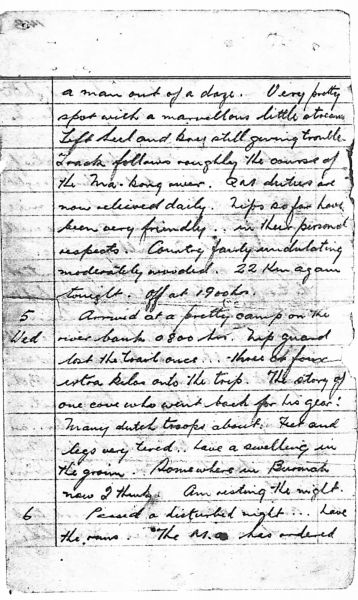 a man out of a daze. Very pretty
spot with a marvellous little stream
Left heel and knee still giving trouble
Track follows roughly the course of
the river. duties are
now relieved daily. Nips so far have
been very friendly. in their personal
respects. Country fairly undulating
moderately wooded. 22 Km again
tonight. Off at 1900hrs.
5 Arrived at a pretty camp on the
Wed river bank 0800 hrs. Nip guard
lost the trail once... three or four
extra kilos onto the trip. The story of
one cove who went back for his gear!
Many dutch troops about. Feet and
legs very tired.. have a swelling in
the groin. Somewhere in Burmah
now I think. Am resting the night.
6 Passed a disturbed night... have
the runs. The M.O. has ordered